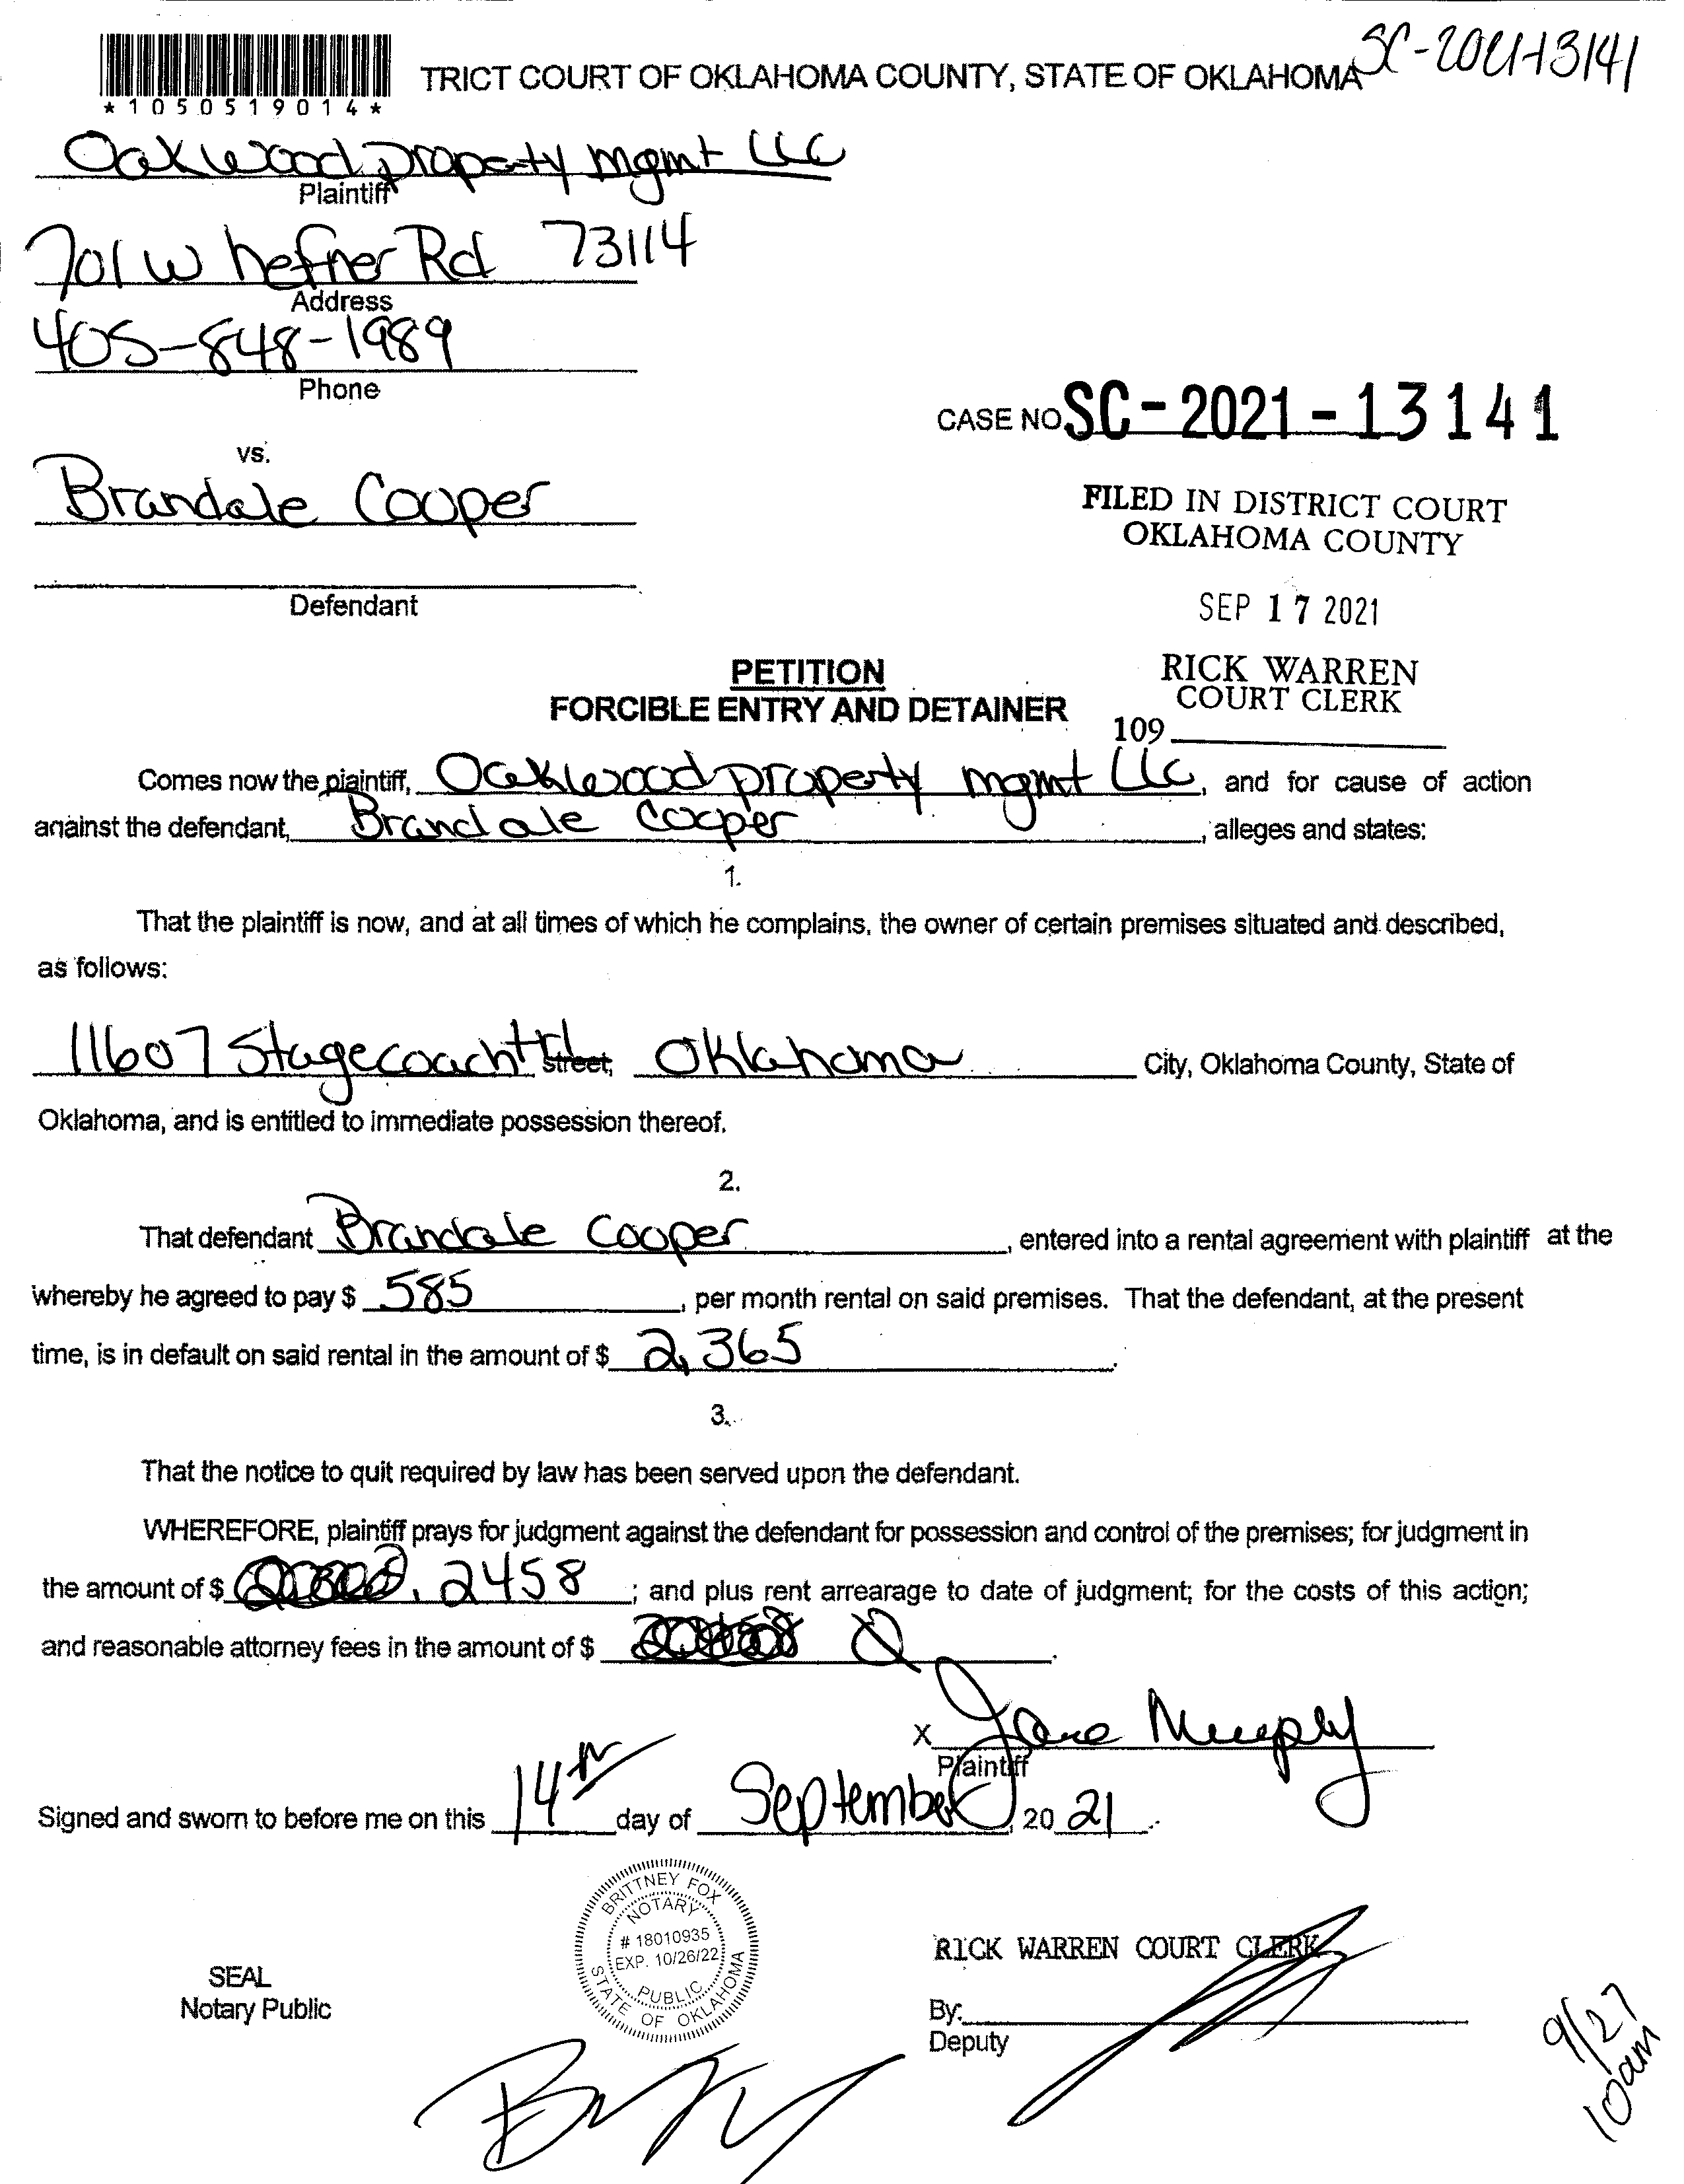 TRICT COURT OF OKLAHOMA COUNTY, STATE OF OKLAHOMA SC-2021-13141
*1050519014*
Oakwood property mgmt LLC
Plaintiff
701 W hefner Rd 73114
Address
405-848-1989
Phone
CASE NO. SC-2021-13141
vs.
Brandale Cooper
FILED IN DISTRICT COURT
OKLAHOMA COUNTY
Defendant
SEP 17 2021
PETITION
FORCIBLE ENTRY AND DETAINER
RICK WARREN
COURT CLERK
109
Comes now the plaintiff, Oaklewood property mgmt LLC, and for cause of action
against the defendant, Brandale Cooper, alleges and states:
1.
That the plaintiff is now, and at all times of which he complains, the owner of certain premises situated and described,
as follows:
11607 Stagecoach trl street, Oklahoma City, Oklahoma County, State of
Oklahoma, and is entitled to immediate possession thereof.
2.
That defendant Brandale Cooper, entered into a rental agreement with plaintiff at the
whereby he agreed to pay $ 585, per month rental on said premises. That the defendant, at the present
time, is in default on said rental in the amount of $ 2,365.
3.
That the notice to quit required by law has been served upon the defendant.
WHEREFORE, plaintiff prays for judgment against the defendant for possession and control of the premises; for judgment in
the amount of $ 2458; and plus rent arrearage to date of judgment; for the costs of this action;
and reasonable attorney fees in the amount of $ 0.
X Jane Murphy
Plaintiff
Signed and sworn to before me on this 14th day of September, 20 21.
BRITTNEY FOX
NOTARY
# 18010935
EXP. 10/26/22
PUBLIC
STATE OF OKLAHOMA
RICK WARREN COURT CLERK
SEAL
Notary Public
By:
Deputy
9/27
10am